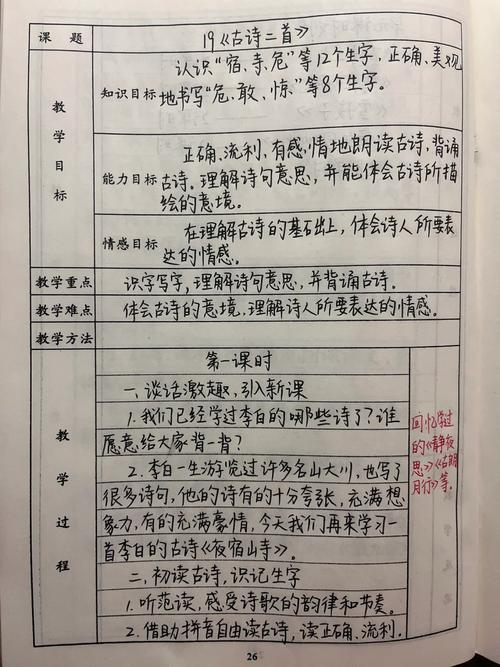 课题 19《古诗二首》
教学目标
知识目标
认识“宿、寺、危”等12个生字,正确、美观
地书写“危、敢、惊”等8个生字。
能力目标
正确、流利、有感情地朗读古诗,背诵
古诗。理解诗句意思,并能体会古诗所描
绘的意境。
情感目标
在理解古诗的基础上,体会诗人所要表
达的情感。
教学重点 识字写字,理解诗句意思,并背诵古诗。
教学难点 体会古诗的意境,理解诗人所要表达的情感。
教学方法
教学过程
第一课时
一、谈话激趣,引入新课
1.我们已经学过李白的哪些诗了?谁
愿意给大家背一背?
2.李白一生游览过许多名山大川,也写了
很多诗句,他的诗有的十分夸张,充满想
象力,有的充满豪情,今天我们再来学习一
首李白的古诗《夜宿山寺》。
二、初读古诗,识记生字
1.听范读,感受诗歌的韵律和节奏。
2.借助拼音自由读古诗,读正确、流利。
回忆学过
的《静夜
思》《古朗
月行》等。
26